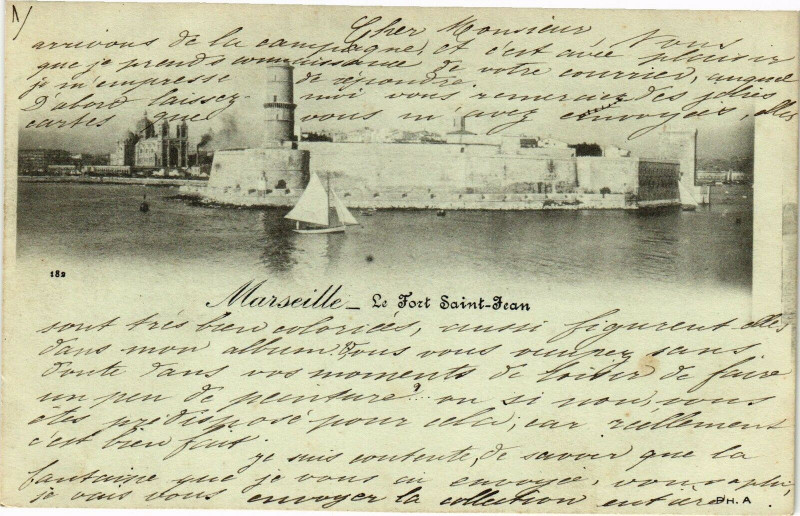 1/
Cher Monsieur, Nous
arrivons de la campagne, et c'est avec plaisir
que je prends connaissance de votre courrier, auquel
je m'empresse de répondre.
D'abord laissez-moi vous remercier des jolies
cartes que vous m'avez envoyées, elles
182
Marseille _ Le Fort Saint-Jean
sont très bien coloriées, aussi figurent-elles
dans mon album. Vous vous occupez sans
doute dans vos moments de loisir de faire
un peu de peinture? ... ou si non, vous
êtes prédisposé pour cela, car réellement
c'est bien fait.
je suis contente, de savoir que la
fantaisie que je vous ai envoyée, vous a plu,
je vais vous envoyer la collection entière
PH. A